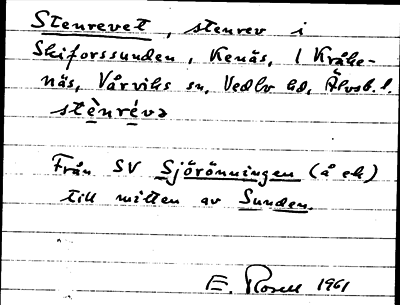 Stenrevet, stenrev i
Skiforssunden, Kenäs, l Kråke-
näs, Vårviks sn, Vedbo hd, Älvsb. l.
stènrévə
Från SV Sjörönningen (å ek)
till mitten av Sunden.
E. Rosell 1961